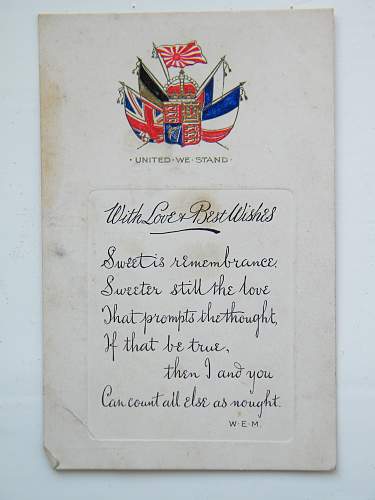 · UNITED · WE · STAND ·
With Love & Best Wishes
Sweet is remembrance,
Sweeter still the love
That prompts the thought,
If that be true,
then I and you
Can count all else as nought.
W.E.M.